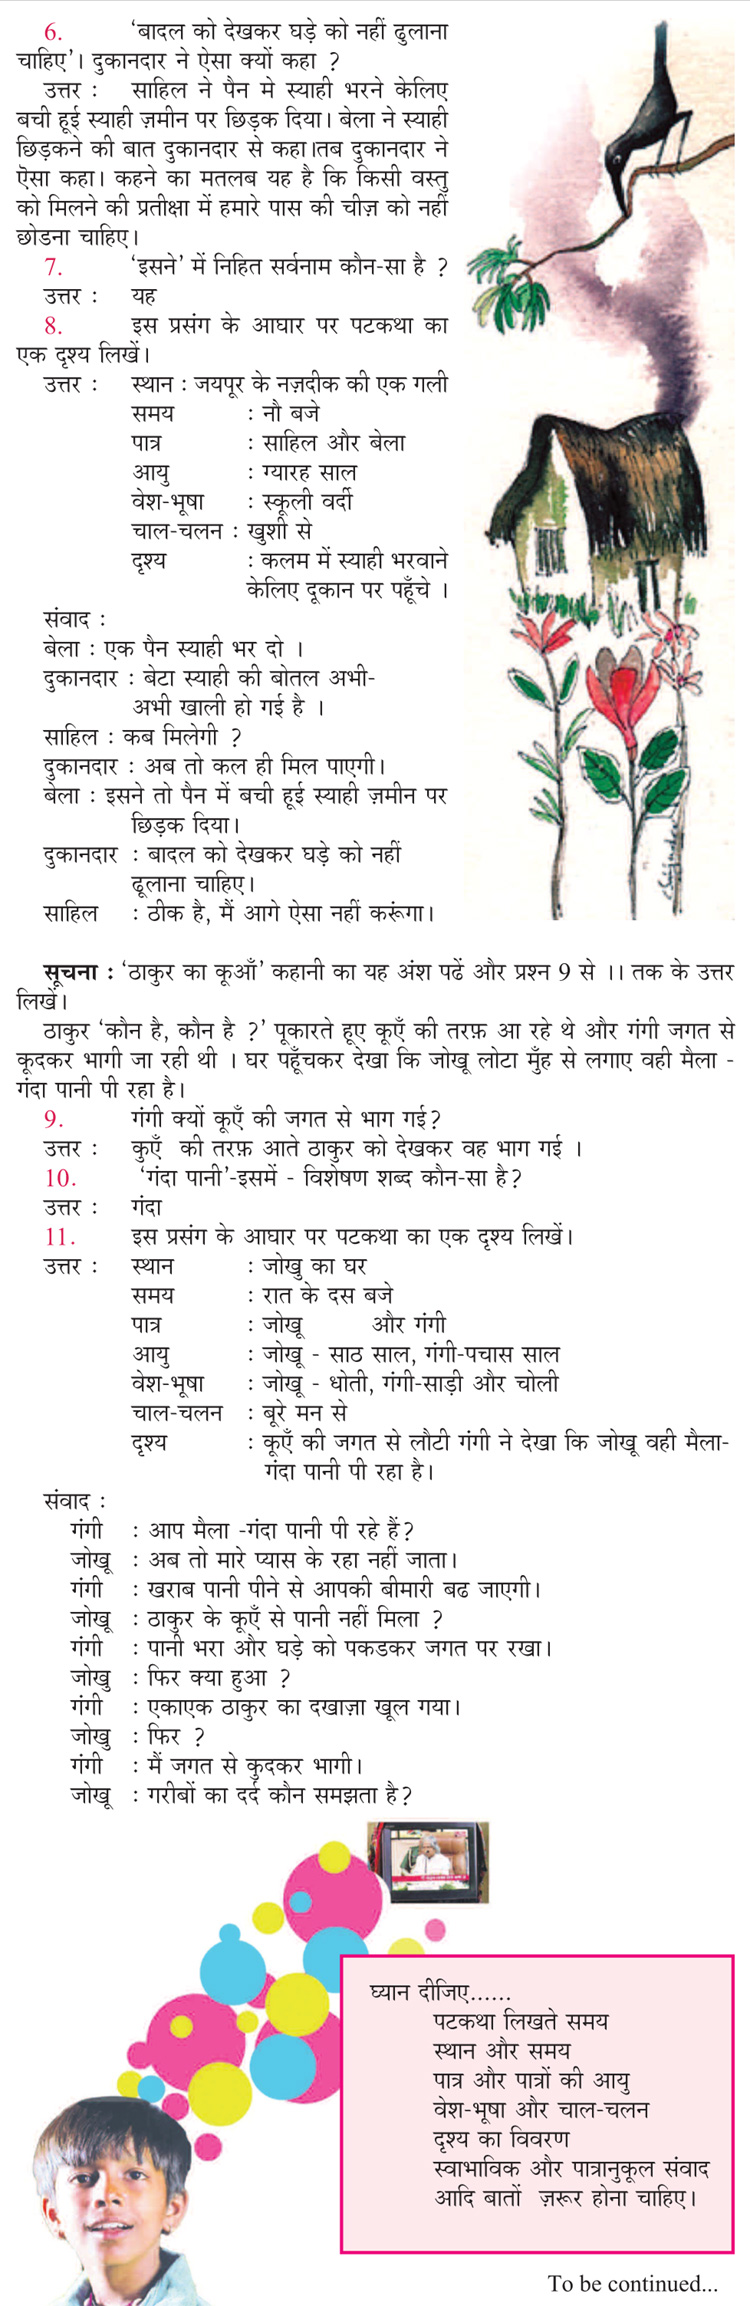 6. ‘बादल को देखकर घड़े को नहीं ढुलाना
चाहिए’। दुकानदार ने ऐसा क्यों कहा ?
उत्तर : साहिल ने पैन मे स्याही भरने केलिए
बची हूई स्याही ज़मीन पर छिड़क दिया। बेला ने स्याही
छिड़कने की बात दुकानदार से कहा।तब दुकानदार ने
ऎसा कहा। कहने का मतलब यह है कि किसी वस्तु
को मिलने की प्रतीक्षा में हमारे पास की चीज़ को नहीं
छोडना चाहिए।
7. ‘इसने’ में निहित सर्वनाम कौन-सा है ?
उत्तर : यह
8. इस प्रसंग के आघार पर पटकथा का
एक दृश्य लिखें।
उत्तर : स्थान : जयपूर के नज़दीक की एक गली
समय : नौ बजे
पात्र : साहिल और बेला
आयु : ग्यारह साल
वेश-भूषा : स्कूली वर्दी
चाल-चलन : खुशी से
दृश्य : कलम में स्याही भरवाने
केलिए दूकान पर पहूँचे ।
संवाद :
बेला : एक पैन स्याही भर दो ।
दुकानदार : बेटा स्याही की बोतल अभी-
अभी खाली हो गई है ।
साहिल : कब मिलेगी ?
दुकानदार : अब तो कल ही मिल पाएगी।
बेला : इसने तो पैन में बची हूई स्याही ज़मीन पर
छिड़क दिया।
दुकानदार : बादल को देखकर घड़े को नहीं
ढूलाना चाहिए।
साहिल : ठीक है, मैं आगे ऐसा नहीं करूंगा।
सूचना : ‘ठाकुर का कूआँ’ कहानी का यह अंश पढें और प्रश्न 9 से ।। तक के उत्तर
लिखें।
ठाकुर ‘कौन है, कौन है ?’ पूकारते हूए कूएँ की तरफ़ आ रहे थे और गंगी जगत से
कूदकर भागी जा रही थी । घर पहूँचकर देखा कि जोखू लोटा मुँह से लगाए वही मैला -
गंदा पानी पी रहा है।
9. गंगी क्यों कूएँ की जगत से भाग गई?
उत्तर : कुएँ की तरफ़ आते ठाकुर को देखकर वह भाग गई ।
10. ‘गंदा पानी’-इसमें - विशेषण शब्द कौन-सा है?
उत्तर : गंदा
11. इस प्रसंग के आघार पर पटकथा का एक दृश्य लिखें।
उत्तर : स्थान : जोखु का घर
समय : रात के दस बजे
पात्र : जोखू और गंगी
आयु : जोखू - साठ साल, गंगी-पचास साल
वेश-भूषा : जोखू - धोती, गंगी-साड़ी और चोली
चाल-चलन : बूरे मन से
दृश्य : कूएँ की जगत से लौटी गंगी ने देखा कि जोखू वही मैला-
गंदा पानी पी रहा है।
संवाद :
गंगी : आप मैला -गंदा पानी पी रहे हैं?
जोखू : अब तो मारे प्यास के रहा नहीं जाता।
गंगी : खराब पानी पीने से आपकी बीमारी बढ जाएगी।
जोखू : ठाकुर के कूएँ से पानी नहीं मिला ?
गंगी : पानी भरा और घड़े को पकडकर जगत पर रखा।
जोखु : फिर क्या हुआ ?
गंगी : एकाएक ठाकुर का दखाज़ा खूल गया।
जोखु : फिर ?
गंगी : मैं जगत से कुदकर भागी।
जोखू : गरीबों का दर्द कौन समझता है?
घ्यान दीजिए......
पटकथा लिखते समय
स्थान और समय
पात्र और पात्रों की आयु
वेश-भूषा और चाल-चलन
दृश्य का विवरण
स्वाभाविक और पात्रानुकूल संवाद
आदि बातों ज़रूर होना चाहिए।
To be continued...